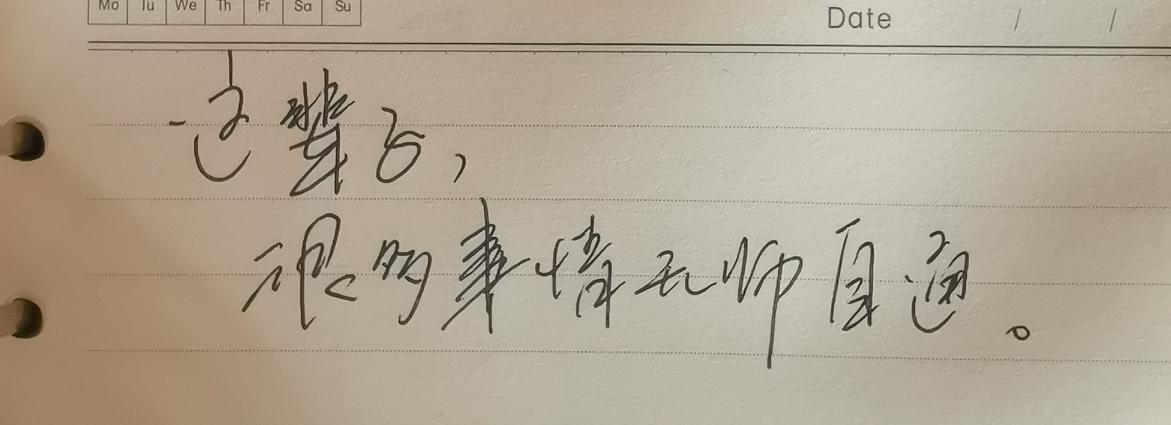 Mo Tu We Th Fr Sa Su
Date / /
这辈子,
很多事情无师自通。